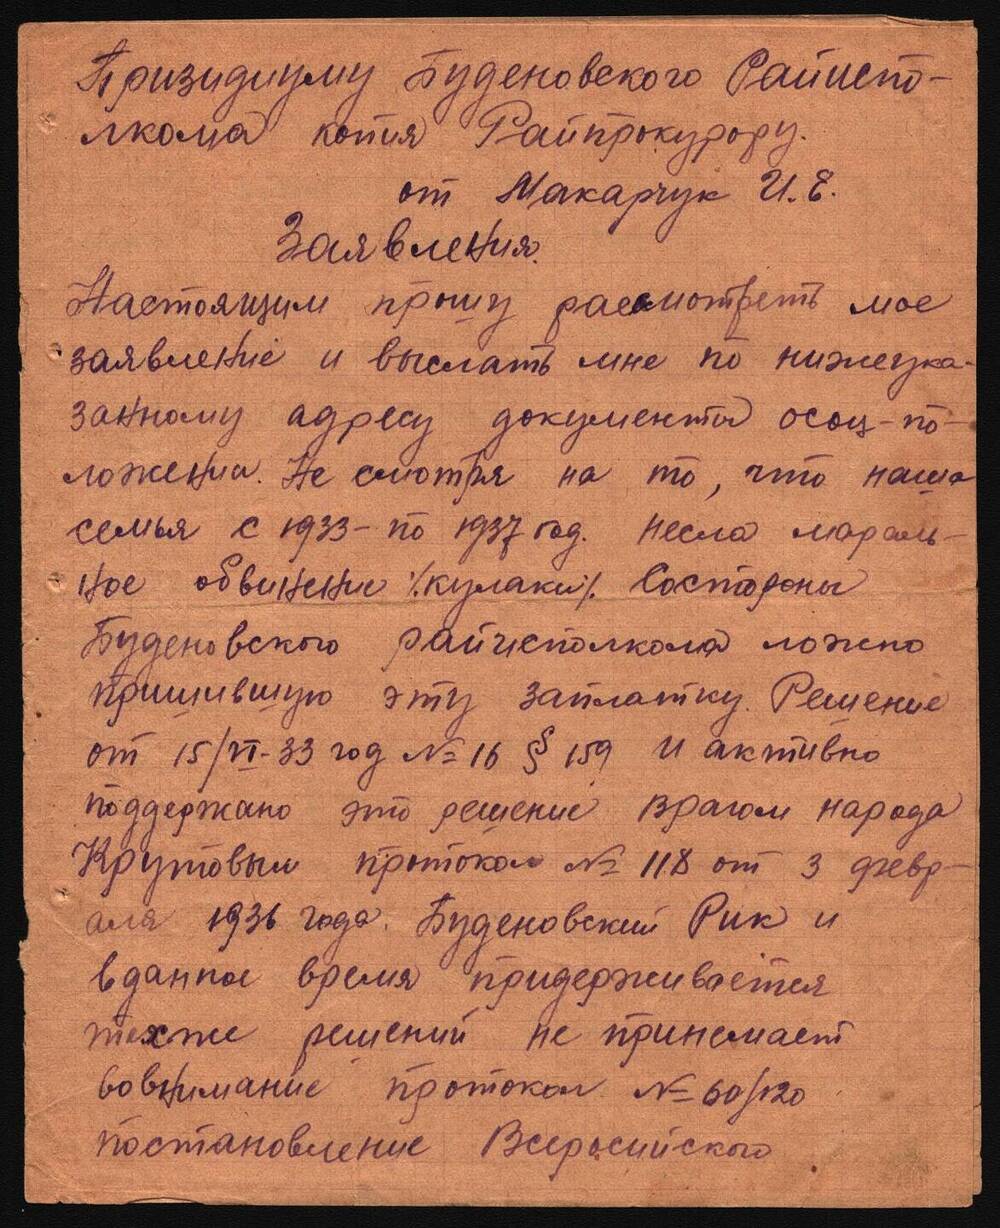 Призидиуму Буденовского Райиспо-
лкома копия Райпрокурору.
от Макарчук И.Е.
Заявления.
Настоящим прошу расмотреть мое
заявление и выслать мне по нижеука-
занному адресу документа осоц-по-
ложении. Не смотря на то, что наша
семья с 1933- по 1937 год. несла мораль-
ное обвинение /кулаки/. Состороны
Буденовского райисполкома ложно
пришившую эту заплатку. Решение
от 15/VI-33 год № 16 § 159 и активно
поддержано это решение врагом народа
Крутовым протокол № 118 от 3 февр-
аля 1936 года. Буденовский Рик и
вданное время придерживается
техже решений не принемает
вовнимание протокол № 60/120
постановление Всеросийского